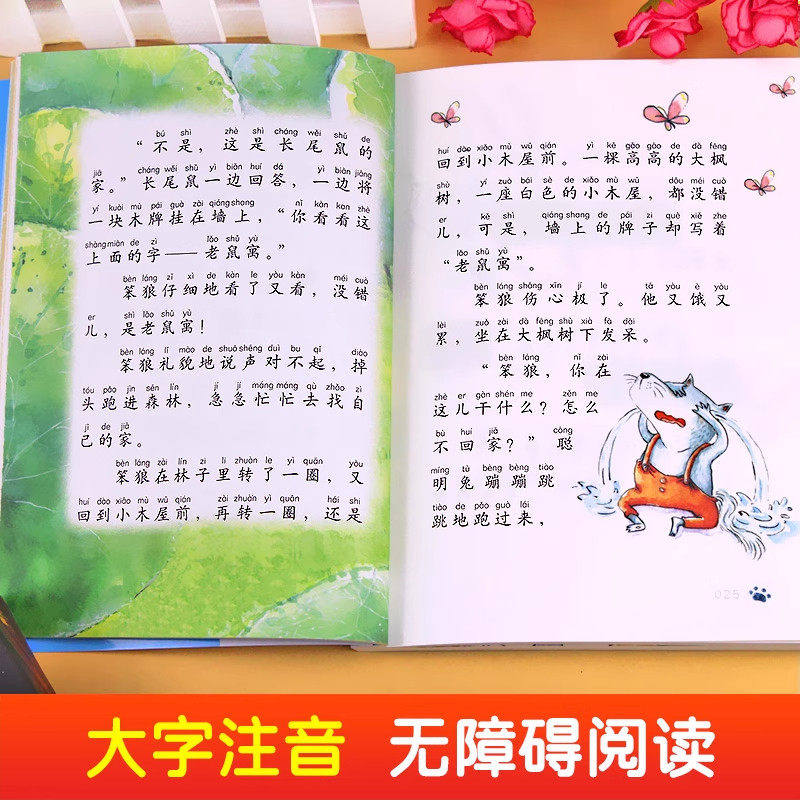 bú shì zhè shì cháng wěi shǔ de
“不是，这是长尾鼠的
jiā cháng wěi shǔ yì biān huí dá yì biān jiāng
家。”长尾鼠一边回答，一边将
yí kuài mù pái guà zài qiáng shang nǐ kàn kan zhè
一块木牌挂在墙上，“你看看这
shàng miàn de zì lǎo shǔ yù
上面的字——老鼠寓。”
bèn láng zǐ xì de kàn le yòu kàn méi cuò
笨狼仔细地看了又看，没错
er shì lǎo shǔ yù
儿，是老鼠寓！
bèn láng lǐ mào de shuō shēng duì bu qǐ diào
笨狼礼貌地说声对不起，掉
tóu pǎo jìn sēn lín jí jí máng máng qù zhǎo zì
头跑进森林，急急忙忙去找自
jǐ de jiā
己的家。
bèn láng zài lín zi li zhuàn le yì quān yòu
笨狼在林子里转了一圈，又
huí dào xiǎo mù wū qián zài zhuàn yì quān hái shi
回到小木屋前，再转一圈，还是
huí dào xiǎo mù wū qián yì kē gāo gāo de dà fēng
回到小木屋前。一棵高高的大枫
shù yí zuò bái sè de xiǎo mù wū dōu méi cuò
树，一座白色的小木屋，都没错
er kě shì qiáng shang de pái zi què xiě zhe
儿，可是，墙上的牌子却写着
lǎo shǔ yù
“老鼠寓”。
bèn láng shāng xīn jí le tā yòu è yòu
笨狼伤心极了。他又饿又
lèi zuò zài dà fēng shù xià fā dāi
累，坐在大枫树下发呆。
bèn láng nǐ zài
“笨狼，你在
zhè er gàn shén me zěn me
这儿干什么？怎么
bù huí jiā cōng
不回家？”聪
míng tù bèng bèng tiào
明兔蹦蹦跳
tiào de pǎo guò lái
跳地跑过来，
025
大字注音 无障碍阅读